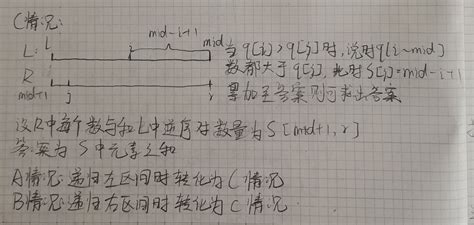 C情况:
L: l i mid-i+1 mid 当q[i]>q[j]时,说明q[i~mid]
R 数都大于q[j],此时S[j]=mid-i+1
mid+1 j r 累加至答案则可求出答案
设R中每个数与和L中逆序对数量为S[mid+1,r]
答案为S中元素之和
A情况:递归左区间时转化为C情况
B情况:递归右区间时转化为C情况